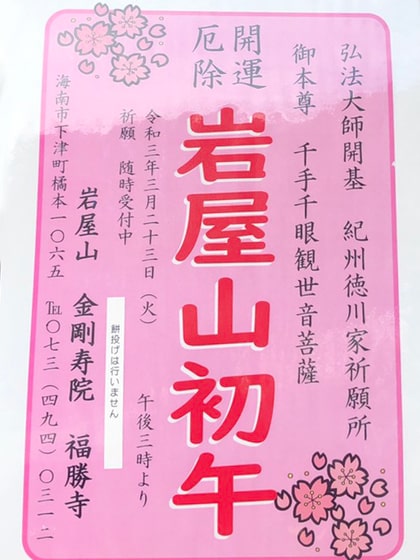 弘法大師開基　紀州徳川家祈願所
御本尊　千手千眼観世音菩薩
開運
厄除
岩屋山初午
令和三年三月二十三日（火）　午後三時より
祈願　随時受付中
餅投げは行いません
岩屋山　金剛寿院　福勝寺
海南市下津町橘本一〇六五　℡〇七三（四九四）〇三一二